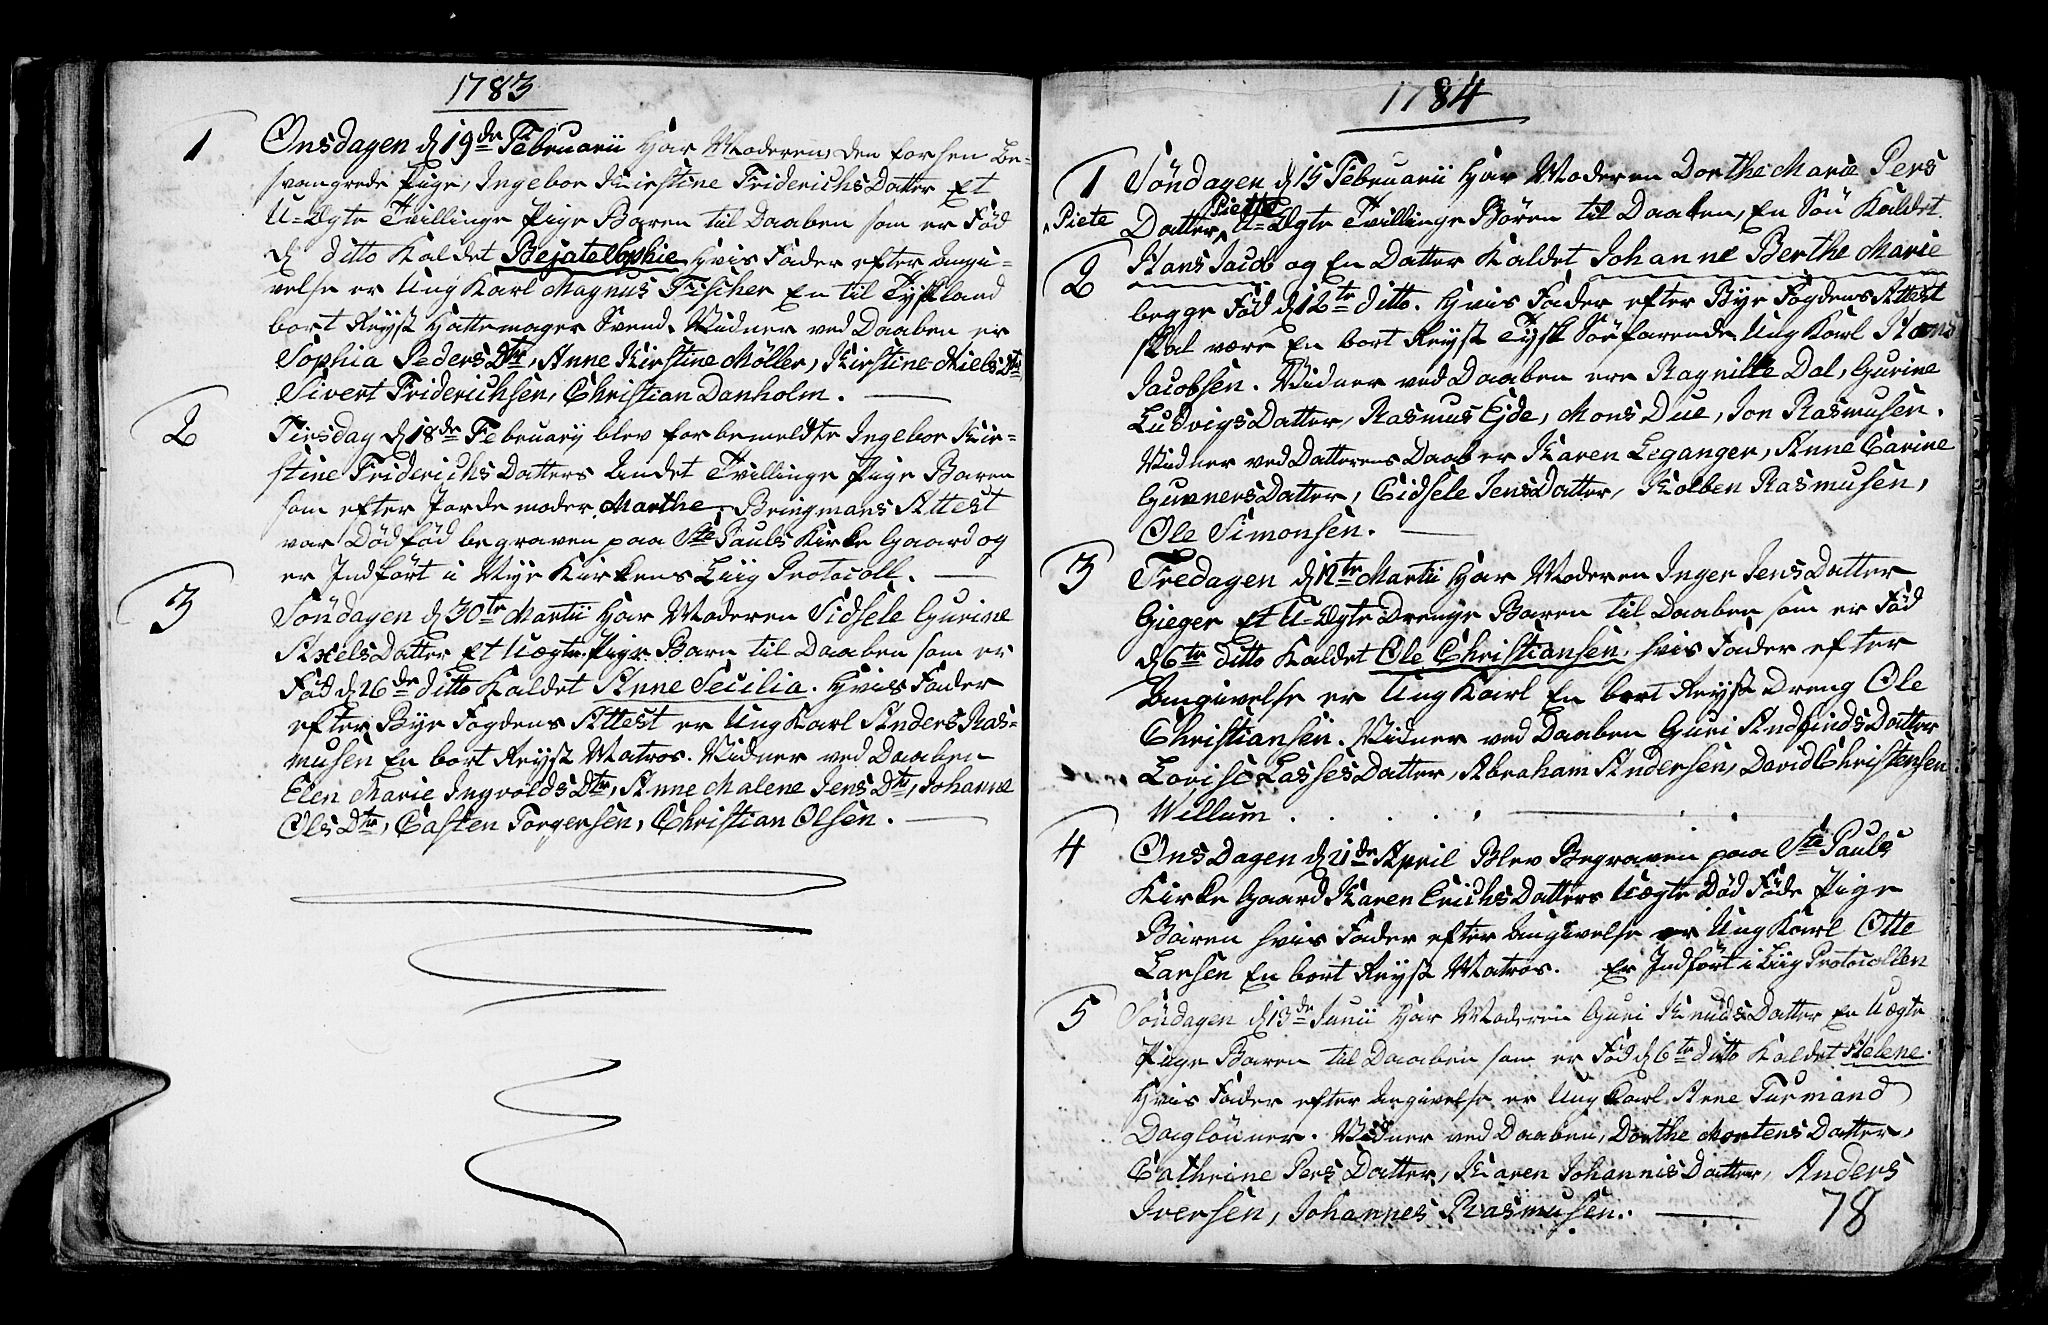 1783
1 Onsdagen d 19de Februarii Har Moderen, den forhen be-
svangrede Pige, Ingebor Kirstine Friderichs Datter Et
U-Ægte Tvillinge Pige Baren til Daaben som er Fød
d ditto Kaldet Bejate Sophie, Hvis Fader efter Angi-
velse er Ung Karl Magnus Fischer En til Tyskland
bort Reyst Hattemager Svend. Vidner ved Daaben er
Sophia Peders Dtr, Anne Kirstine Møller, Kirstine Niels Dtr
Sivert Friderichsen, Christian Danholm.
2 Tirsdag d 18de February blev forbemeldte Ingebor Kir-
stine Friderichs Datters Andet Tvillinge Pige Baren
som efter Jordemoder Marthe Bringmans Attest
var Død fød begraven paa Ste Pauls Kirke Gaard og
er Indført i Nye Kirkens Liig Protocoll.
3 Søndagen d 30te Martii Har Moderen Sidsele Gurine
Axels Datter Et Uægte Pige Barn til Daaben som er
Fød d 26de ditto Kaldet Anne Secilia. Hvis Fader
efter Bye Fogdens Attest er Ung Karl Anders Ras-
musen En bort Reyst Matros. Vidner ved Daaben
Elen Marie Ingvolds Dtr, Anne Malene Jens Dtr, Johanne
Ols Dtr, Casten Torgersen, Christian Olsen.
1784
1 Søndagen d 15 Februarii Har Moderen Dorthe Marie Pers
Piete Datter, Piette U-Ægte Tvillinge Børen til Daaben, En Søn Kaldet
2 Hans Jacob og En Datter Kaldet Johanne Berthe Marie
begge Fød d 12te ditto. Hvis Fader efter Bye Fogdens Attest
skal være En bort Reyst Tysk Søefarende Ung Karl Hans
Jacobsen. Vidner ved Daaben ere Ragnille Dal, Gurine
Ludvigs Datter, Rasmus Ejde, Mons Due, Jon Rasmusen.
Vidner ved Datterens Daab er Karen Leganger, Anne Carine
Gunners Datter, Cidsele Jens Datter, Kolben Rasmusen,
Ole Simonsen.
3 Fredagen d 12te Martii Har Moderen Inger Jens Datter
Gieger Et U-Ægte Drenge Baren til Daaben som er Fød
d 6te ditto Kaldet Ole Christiansen, hvis Fader efter
Angivelse er Ung Karl En bort Reyst Dreng Ole
Christiansen. Vidner ved Daaben Guri Andfinds Datter
Lovise Lasses Datter, Abraham Andersen, David Christensen
Willum.
4 Ons Dagen d 21de April Blev Begraven paa Ste Pauls
Kirke Gaard Karen Erichs Datters Uægte Død Føde Pige
Baren hvis Fader efter Angivelse er Ung Karl Otte
Larsen En bort Reyst Matros. Er Indført i Liig Protocollen
5 Søndagen d 13de Junii Har Moderen Guri Knuds Datter En Uægte
Pige Baren til Daaben som er Fød d 6te ditto Kaldet Helene.
Hvis Fader efter Angivelse er Ung Karl Arne Turmand
Daglønner. Vidner ved Daaben, Dorthe Mortens Datter,
Cathrine Pers Datter, Karen Johannis Datter, Anders
Iversen, Johannes Rasmusen.
78